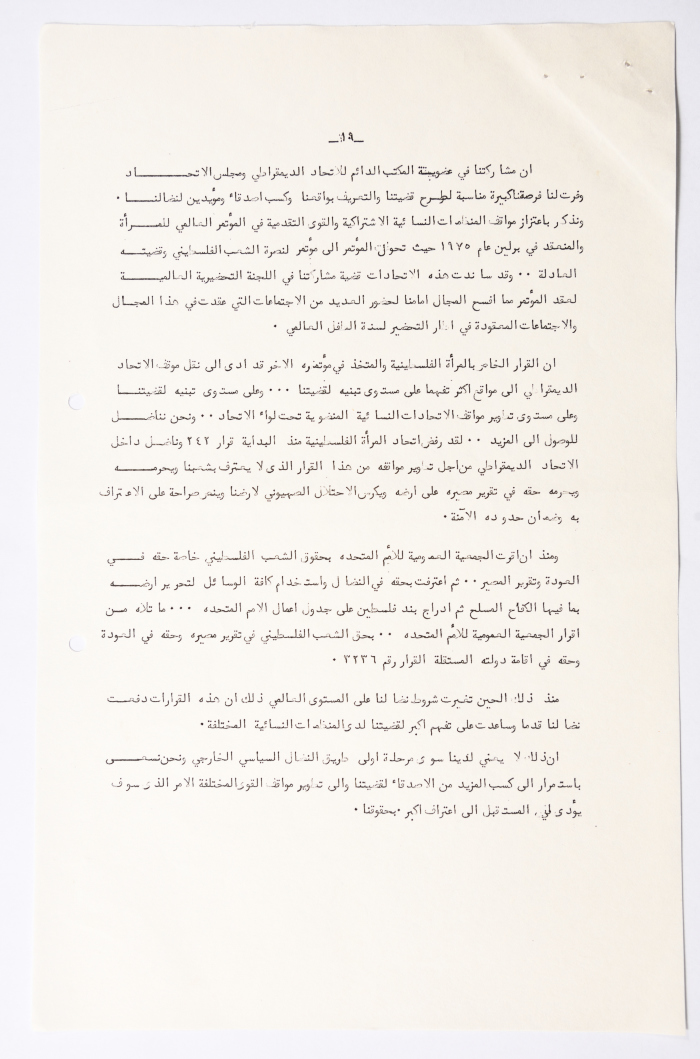 ـ١٩ـ
ان مشاركتنا في عضوية المكتب الدائم للاتحاد الديمقراطي ومجلس الاتحـــــــــاد
وفرت لنا فرصة كبيرة مناسبة لطرح قضيتنا والتعريف بواقعنا وكسب اصدقاء ومؤيدين لنضالنـــا .
ونذكر باعتزاز مواقف المنظمات النسائية الاشتراكية والقوى التقدمية في المؤتمر العالمي للمـــرأة
والمنعقد في برلين عام ١٩٧٥ حيث تحول المؤتمر الى مؤتمر لنصرة الشعب الفلسطيني وقضيتـــه
العادلة .. وقد ساندت هذه الاتحادات قضية مشاركتنا في اللجنة التحضيرية العالميـــة
لعقد المؤتمر مما افسح المجال امامنا لحضور العديد من الاجتماعات التي عقدت في هذا المجـال
والاجتماعات المعقودة في اطار التحضير لسنة الطفل العالمي .
ان القرار الخاص بالمرأة الفلسطينية والمتخذ في مؤتمره الاخر قد ادى الى نقل موقف الاتحاد
الديمقراطي الى مواقع اكثر تفهما على مستوى تبنيه لقضيتنا ... وعلى مستوى تبنيه لقضيتنـــا
وعلى مستوى تطوير مواقف الاتحادات النسائية المنضوية تحت لواء الاتحاد .. ونحن نناضـل
للوصول الى المزيد .. لقد رفض اتحاد المرأة الفلسطينية منذ البداية قرار ٢٤٢ وناضل داخل
الاتحاد الديمقراطي من اجل تطوير مواقفه من هذا القرار الذى لا يعترف بشعبنا ويحرمـــه
ويحرمه حقه في تقرير مصيره على ارضه ويكرس الاحتلال الصهيوني لارضنا وينص صراحة على الاعتراف
به وضمان حدوده الآمنة .
ومنذ ان اقرت الجمعية العمومية للأمم المتحده بحقوق الشعب الفلسطيني خاصة حقه فـــي
العودة وتقرير المصير .. ثم اعترفت بحقه في النضال واستخدام كافة الوسائل لتحرير ارضــه
بما فيها الكفاح المسلح ثم ادراج بند فلسطين على جدول اعمال الامم المتحده ... ما تلاه مـن
اقرار الجمعية العمومية للأمم المتحده .. بحق الشعب الفلسطيني في تقرير مصيره وحقه في العودة
وحقه في اقامة دولته المستقلة القرار رقم ٣٢٣٦ .
منذ ذلك الحين تغيرت شروط نضالنا على المستوى العالمي ذلك ان هذه القرارات دفعـت
نضالنا قدما وساعدت على تفهم اكبر لقضيتنا لدى المنظمات النسائية المختلفة .
ان ذلك لا يعني لدينا سوى مرحلة اولى طريق النضال السياسي الخارجي ونحن نسعـــى
باستمرار الى كسب المزيد من الاصدقاء لقضيتنا والى تطوير مواقف القوى المختلفة الامر الذى سوف
يؤدى في المستقبل الى اعتراف اكبر بحقوقنا .